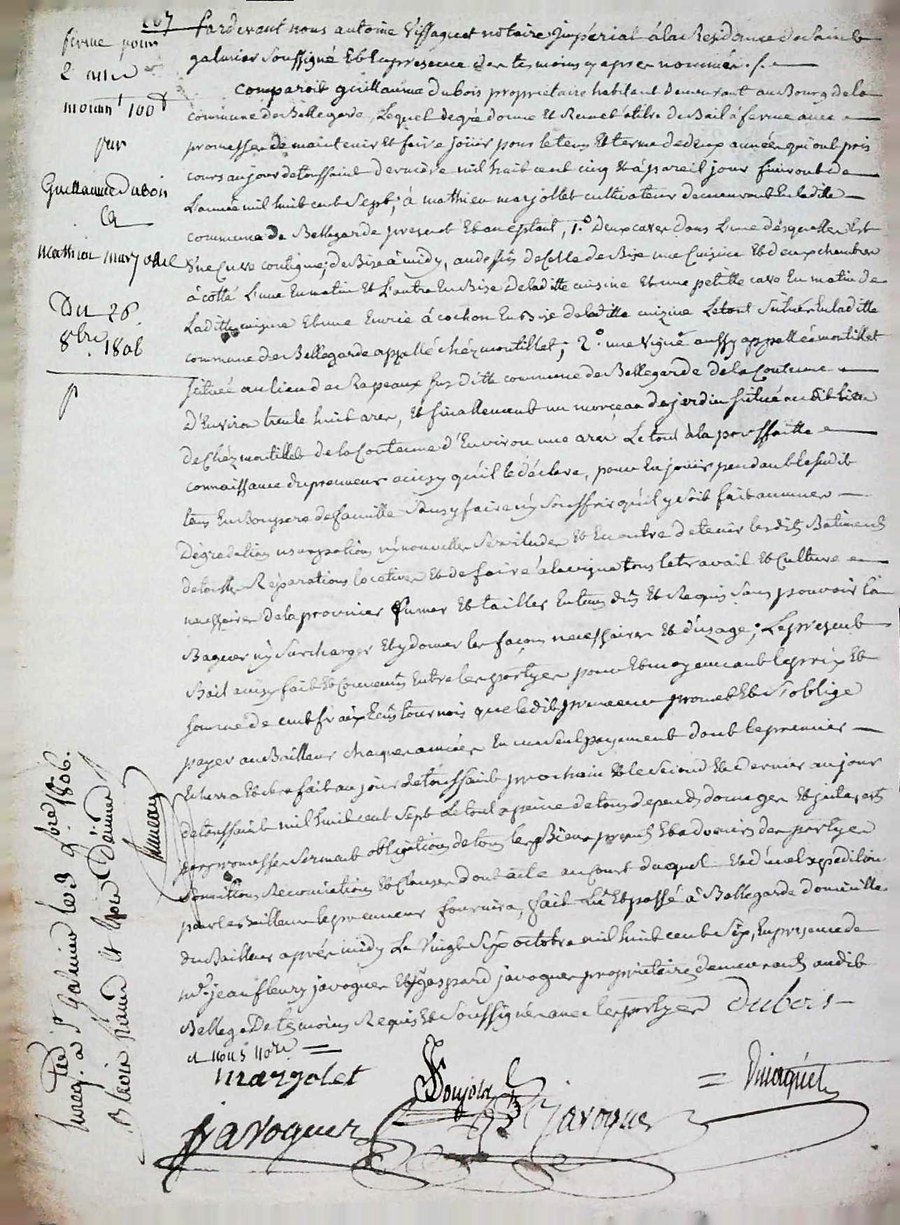 207
ferme pour
2 ans
mont. 100f
par
Guillaume Dubois
à
Mathieu marjollet
Du 26
8bre 1806
Pardevant nous antoine Vissaguet notaire Impérial à la Residance de Saint
galmier Soussigné Et En presence des temoins cy apres nommés
Comparoit guillaume dubois propriétaire habitant demeurant au Bourg de la
commune de Bellegarde, Lequel de gré donne Et Remet à titre de Bail à ferme avec
promesse de maintenir et faire joüir pour le tems Et terme de deux années qui ont pris
cours au jour de toussaint dernière mil huit cent cinq Et à pareil jour finiront de
L'année mil huit cent Sept; à mathieu marjollet cultivateur demeurant En ladite
commune de Bellegarde present Et acceptant, 1.o Deux caves dans L'une désquelles Est
Une Cuve contigue, de Bise à midy, au dessus de Celle de Bise une Cuisine Et deux chambres
à cotté L'une En matin Et L'autre En Bise de ladite cuisine Et une petitte cave En matin de
Laditte cuizine Et une Ecurie à cochon En Bise de laditte cuizine Le tout Situé En laditte
commune de Bellegarde appellé chéz montillet; 2.o une Vigne aussy appellée montillet
Située au lieu des Rapeaux susditte commune de Bellegarde de la Contenue
D'Environ trente huit ares, Et finallement un morceau de jardin Situé audit lieu
de Chéz montillet de la Contenue d'Environ une are Le tout à la parfaitte
connaissance du preneur ainsy qu'il le déclare, pour En joüir pendant le susdit
tems En Bon pere de famille Sans y faire ny Souffrir qu'il y soit fait aucunes
Dégradation usurpations ny nouvelles Servitudes Et En outre de tenir lesdits Batiments
de toutes Réparations locatives Et de faire à la vigne tous le travail Et Culture
necessaire de la provinier fumer Et tailler En tems dus Et Requis Sans pouvoir la
ny Surcharger Et y donner les façons necessaires Et d'usage; Le present
Bail ainsy fait Et Convenu Entre les partyes pour Et moyennant le prix Et
Somme de cent francs tournois que ledit preneur promet Et S'oblige
payer au Bailleur chaque année En un Seul payement dont le premier
Echerra Et Sera fait au jour de toussaint prochain Et le Second Et dernier au jour
de toussaint mil huit cent Sept Le tout à peine de tous depends domages Et interets
par promesse Serment obligation de tous les Biens presents Et advenirs des partyes
Soumission Renonciations Et Clauses dont acte au Cout duquel Et d'une Expedition
pour le Bailleur le preneur fournira, fait Lû Et passé à Bellegarde domicille
du Bailleur aprés midy Le Vingt Six octobre mil huit cent Six, En presence de
Mr. jean fleury javogues Et gaspard javogues propriétaires demeurants audit
Bellegde temoins Requis Et Soussignés avec les partyes Dubois
et nous Nore
margolet
Javogues
Javogues
Vissaguet
Enreg. à St Galmier le 3 9bre 1806.